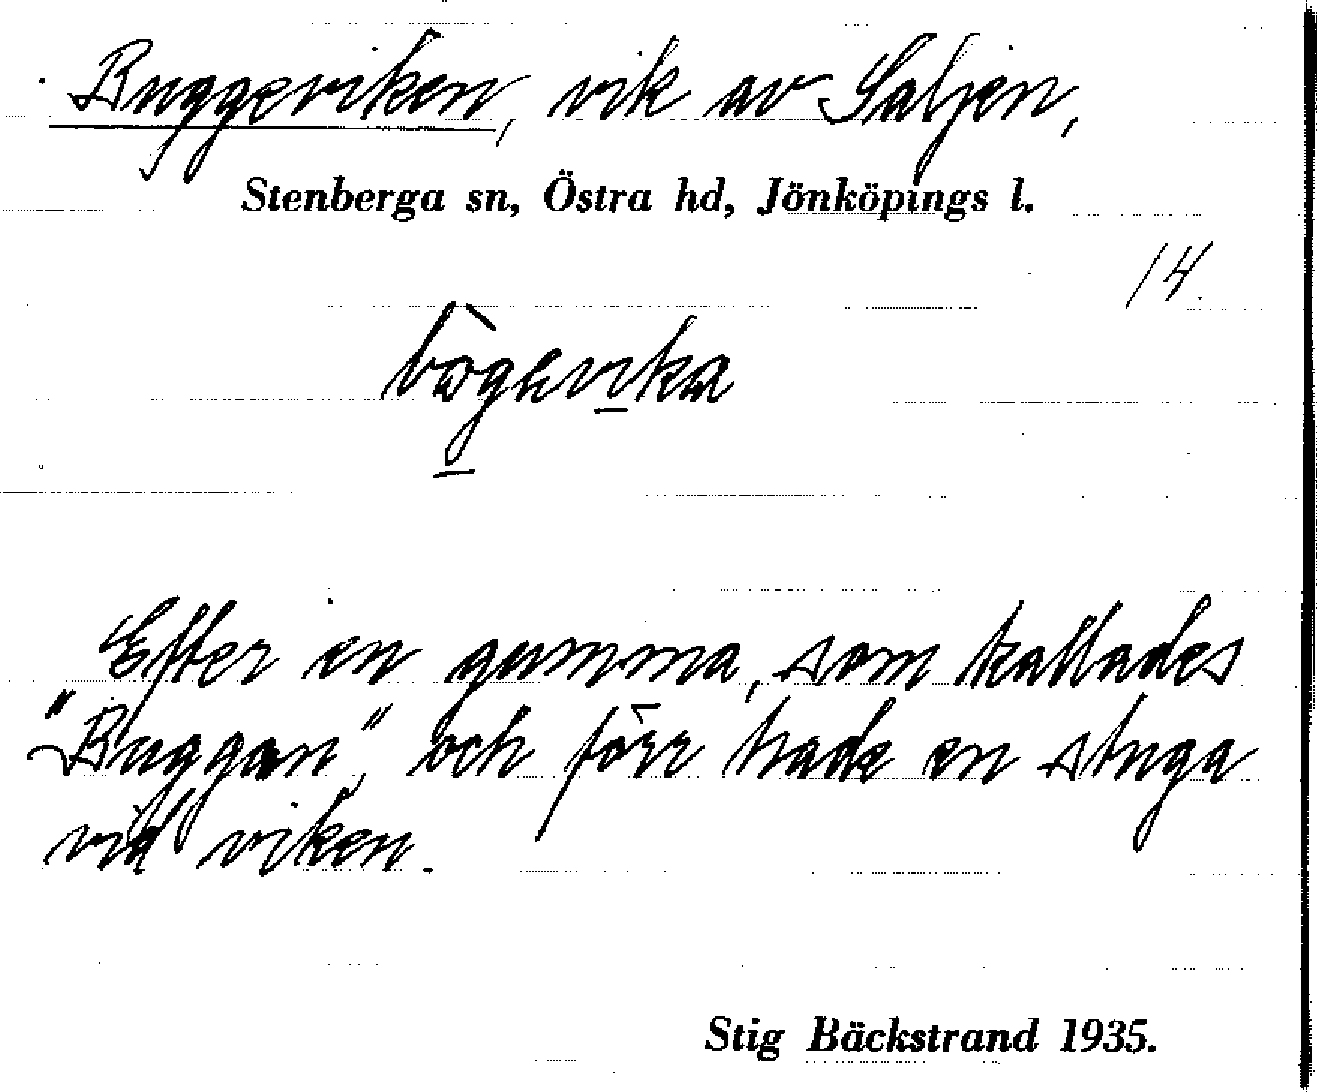 Buggeviken, vik av Saljen,
Stenberga sn, Östra hd, Jönköpings l.
14.
Efter en gumma, som kallades
"Buggan", och förr hade en stuga
vid viken.
Stig Bäckstrand 1935.